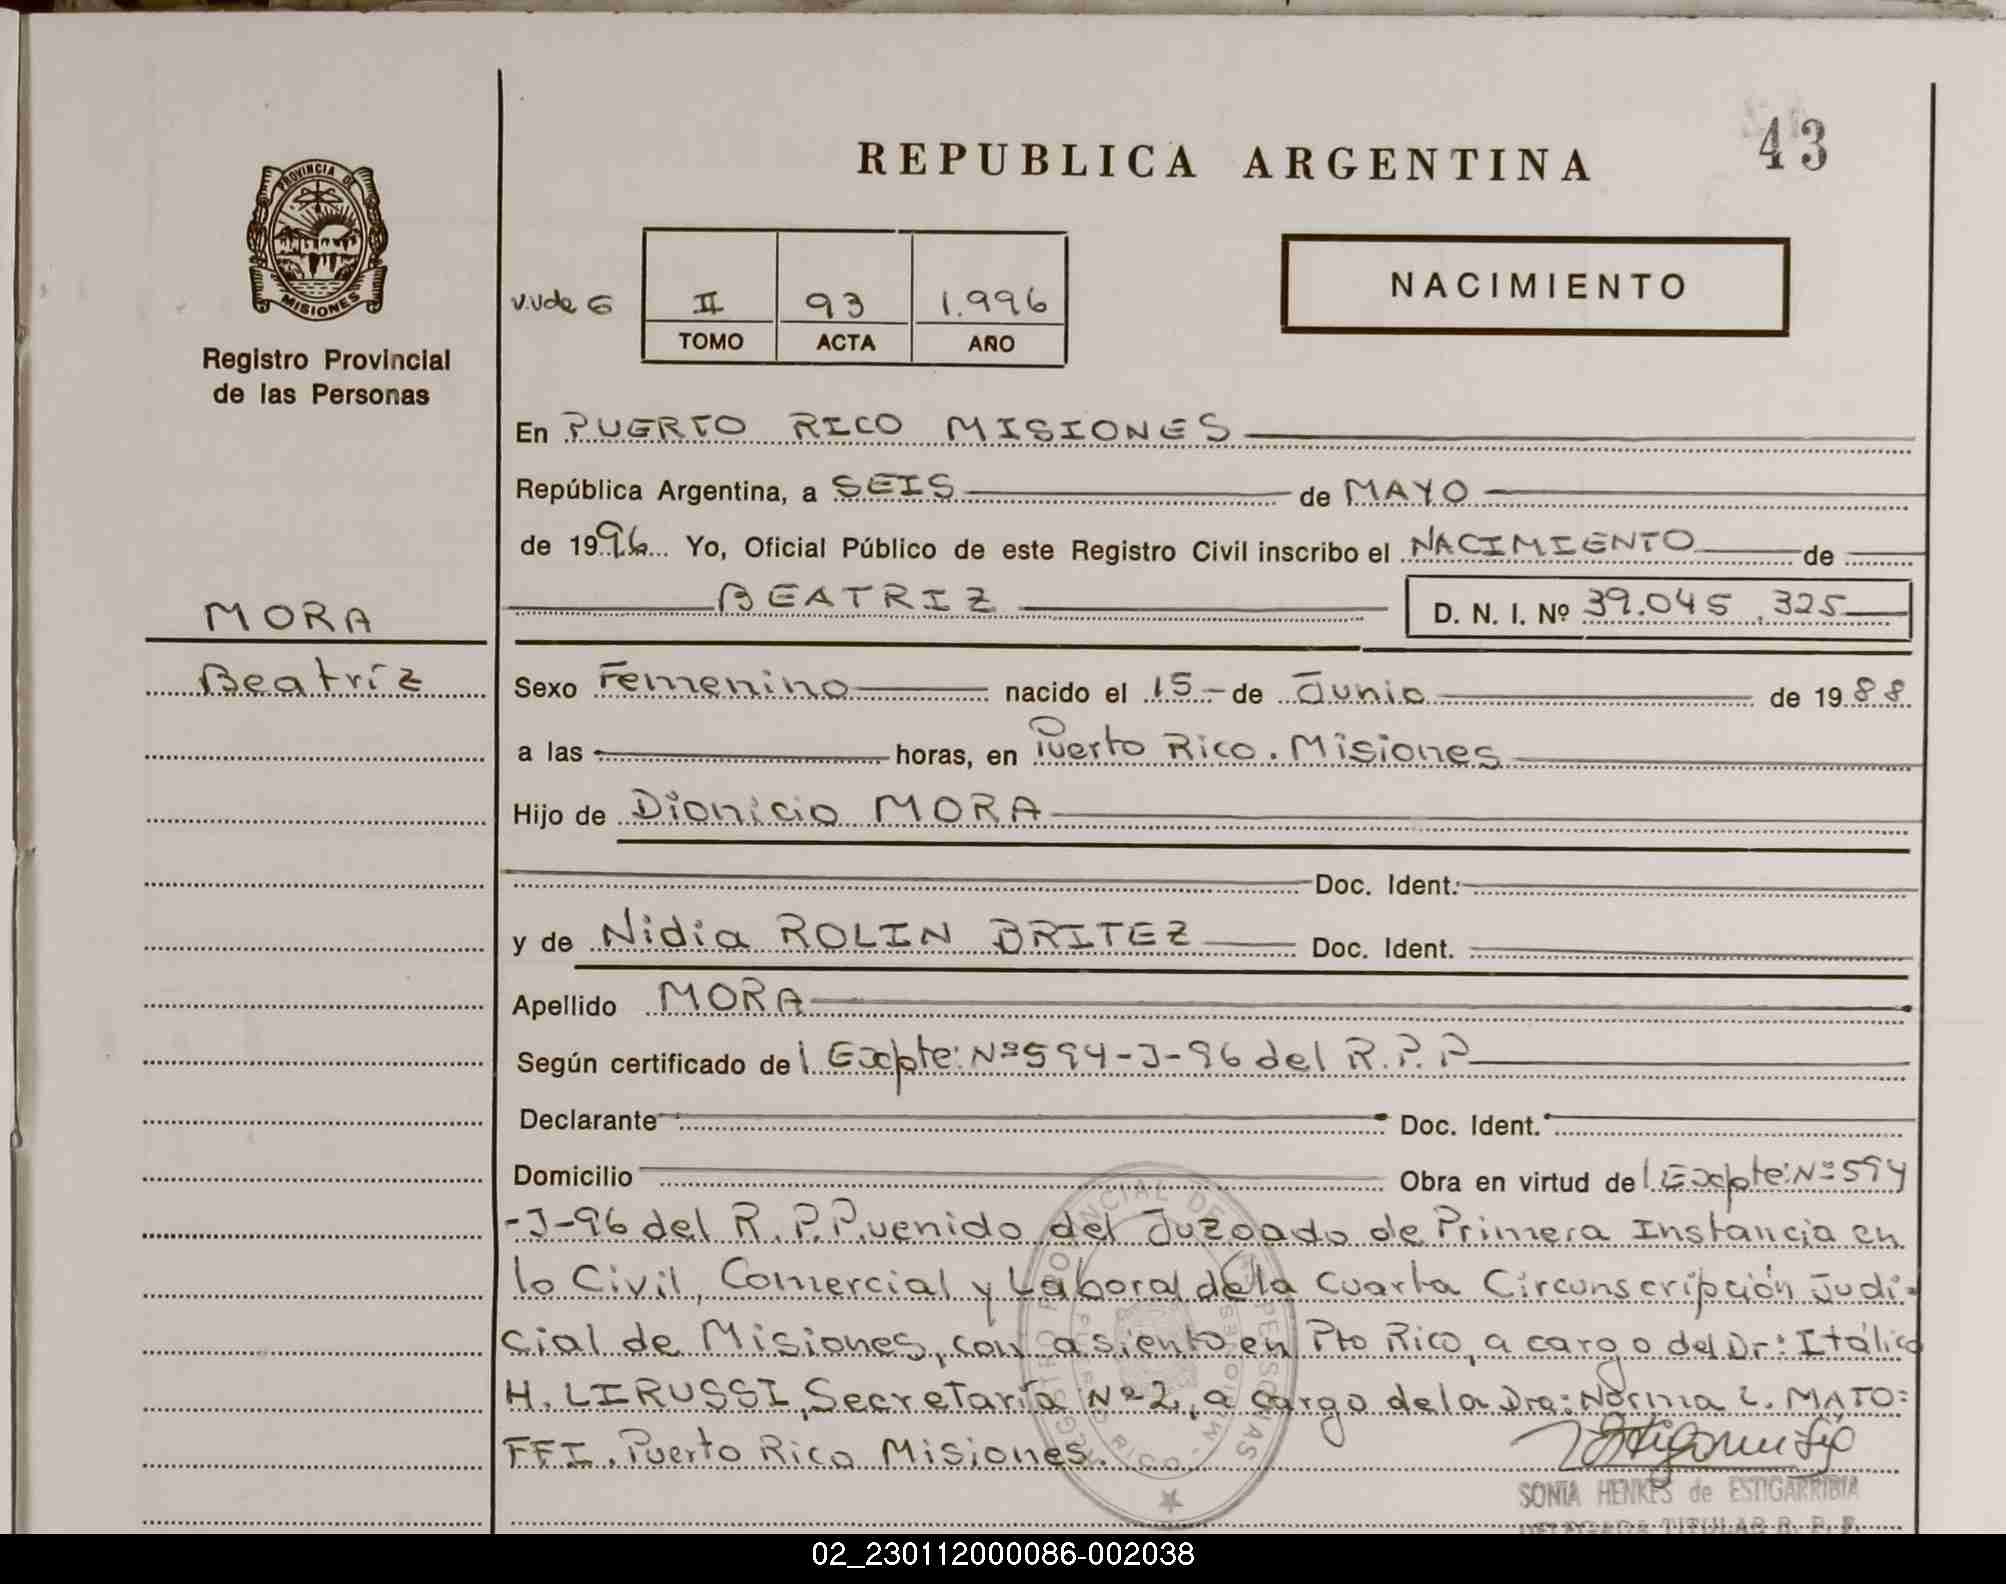 43
REPUBLICA ARGENTINA
PROVINCIA DE
MISIONES
Registro Provincial
de las Personas
NACIMIENTO
II 93 1.996
TOMO ACTA AÑO
En PUERTO RICO MISIONES
República Argentina, a SEIS de MAYO
de 1996 Yo, Oficial Público de este Registro Civil inscribo el NACIMIENTO de
BEATRIZ D. N. I. Nº 39.045.325
MORA
Beatríz
Sexo Femenino nacido el 15 - de Junio de 1988
a las horas, en Puerto Rico. Misiones
Hijo de Dionicio MORA
Doc. Ident.
y de Nidia ROLIN BRITEZ Doc. Ident.
Apellido MORA
Según certificado de l Expte: Nº 594-J-96 del R.P.P
Declarante Doc. Ident.
Domicilio Obra en virtud de l Expte: Nº 594
-J-96 del R.P.P. venido del Juzgado de Primera Instancia en
lo Civil, Comercial y Laboral de la Cuarta Circunscripción Judi-
cial de Misiones, con asiento en Pto Rico, a cargo del Dr: Itálico
H. LIRUSSI, Secretaría Nº 2, a cargo de la Dra: Norma L. MATO=
FFI. Puerto Rico Misiones.
REGISTRO PROVINCIAL DE LAS PERSONAS
PUERTO RICO - MISIONES
SONIA HENKES de ESTIGARRIBIA
DELEGADA TITULAR R. P. P.
02_230112000086-002038